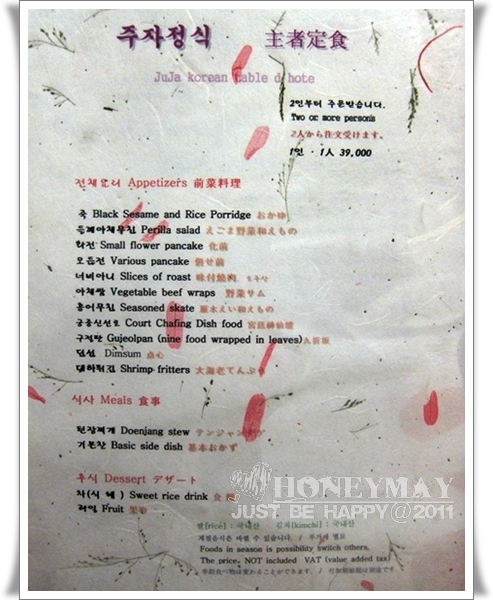 주자정식 主者定食
JuJa korean table d'hote
2인부터 주문받습니다.
Two or more persons
2人から注文受けます。
1인 · 1人 39,000
전채요리 Appetizers 前菜料理
죽 Black Sesame and Rice Porridge おかゆ
들깨야채무침 Perilla salad えごま野菜和えもの
화전 Small flower pancake 化煎
모듬전 Various pancake 併せ煎
너비아니 Slices of roast 味付焼肉
야채쌈 Vegetable beef wraps 野菜サム
홍어무침 Seasoned skate えい和えもの
궁중신선로 Court Chafing Dish food 宮廷神仙炉
구절판 Gujeolpan (nine food wrapped in leaves) 九節板
딤섬 Dimsum 点心
대하튀김 Shrimp fritters 大海老てんぷら
식사 Meals 食事
된장찌개 Doenjang stew テンジャンチゲ
기본찬 Basic side dish 基本おかず
후식 Dessert デザート
차(식혜) Sweet rice drink
과일 Fruit 果物
HONEYMAY
JUST BE HAPPY@2011
쌀(rice) : 국내산 김치(kimchi) : 국내산
계절음식은 바뀔 수 있습니다. / 부가세 별도
Foods in season is possibility switch others.
The price, NOT included VAT (value added tax)
季節食べ物は変わることができます。 / 付加価値税は別途です。